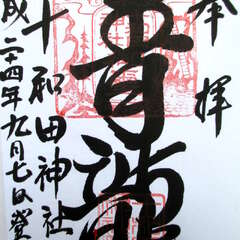 奉拝
青龍
十和田神社
成二四年九月七日登